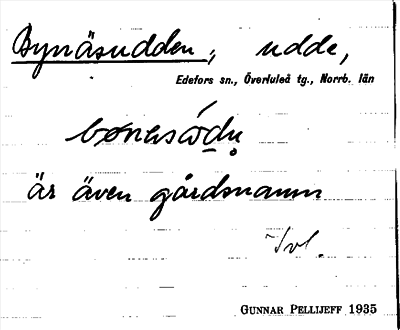 Bynäsudden, udde,
Edefors sn., Överluleå tg., Norrb. län
är även gårdsnamn
GUNNAR PELLIJEFF 1935